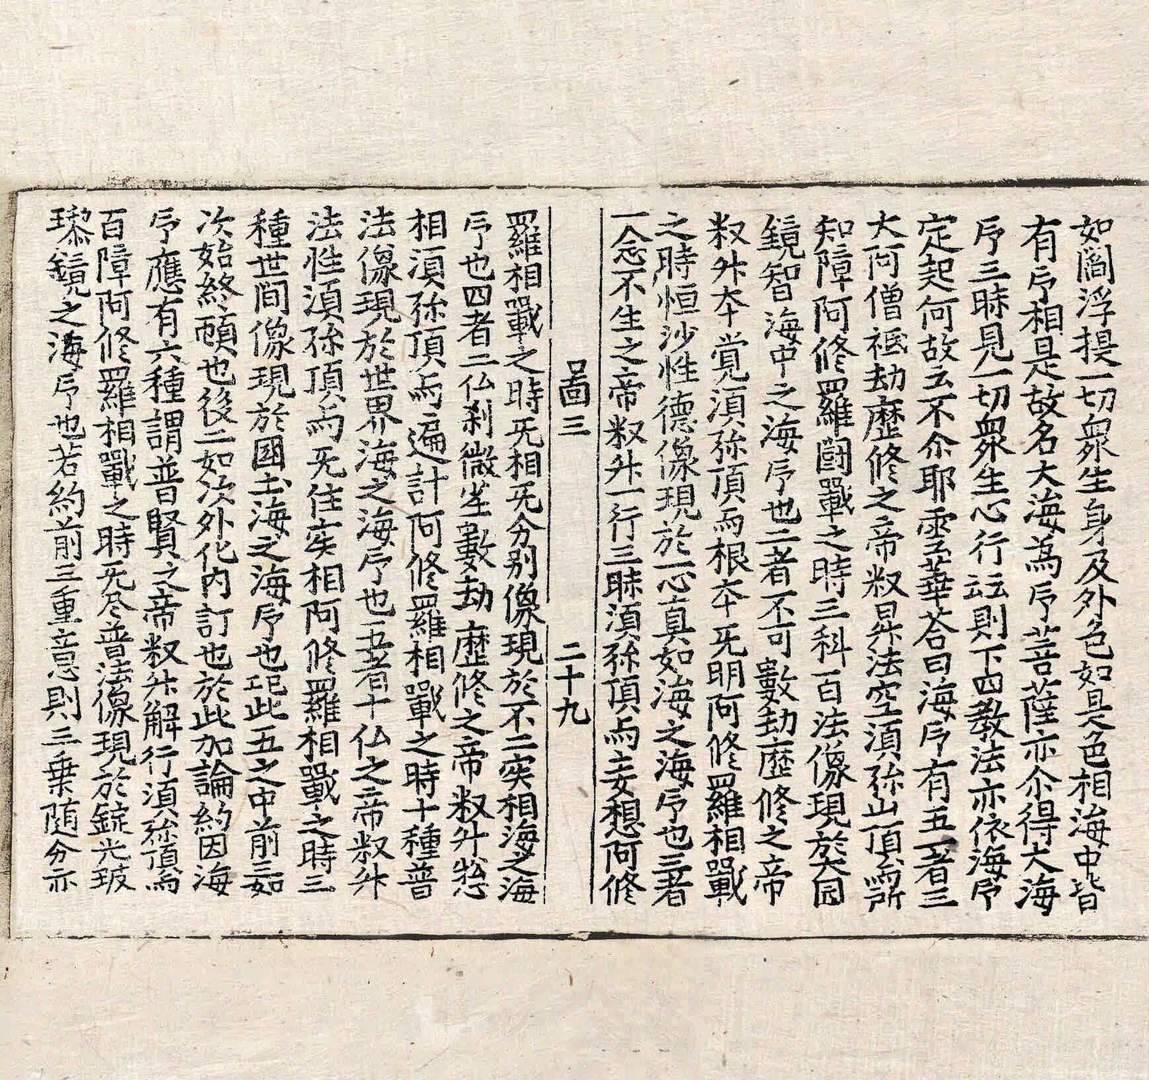 如閻浮提一切衆生身及外色如是色相海中皆
有卪相是故名大海爲卪菩薩亦尒得大海
卪三昧見一切衆生心行䛇則下四教法亦依海卪
定起何故云不尒耶雲華荅曰海卪有五一者三
大阿僧祗劫歷修之帝釈昇法空湏弥山頂与所
知障阿修羅闘戰之時三科百法像現於大囩
鏡智海中之海卪也二者不可數劫歷修之帝
釈升夲覺湏弥頂与根夲旡明阿修羅相戰
之時恒沙性德像現於一心真如海之海卪也三者
一念不生之帝釈升一行三昧湏弥頂与妄想阿修
啚三 二十九
羅相戰之時旡相旡分别像現於不二实相海之海
卪也四者二仏刹微尘數劫歷修之帝釈升惣
相湏弥頂与遍計阿修羅相戰之時十種普
法像現於世界海之海卪也五者十仏之帝釈升
法性湏弥頂与旡住实相阿修羅相戰之時三
種世间像現於國土海之海卪也䛇此五之中前三如
次始終頓也後二如次外化内訂也於此加論約因海
卪應有六種謂普賢之帝釈升解行湏弥頂与
百障阿修羅相戰之時旡尽普法像現於錠光玻
瓈鏡之海卪也若約前三重意則三乗随分亦